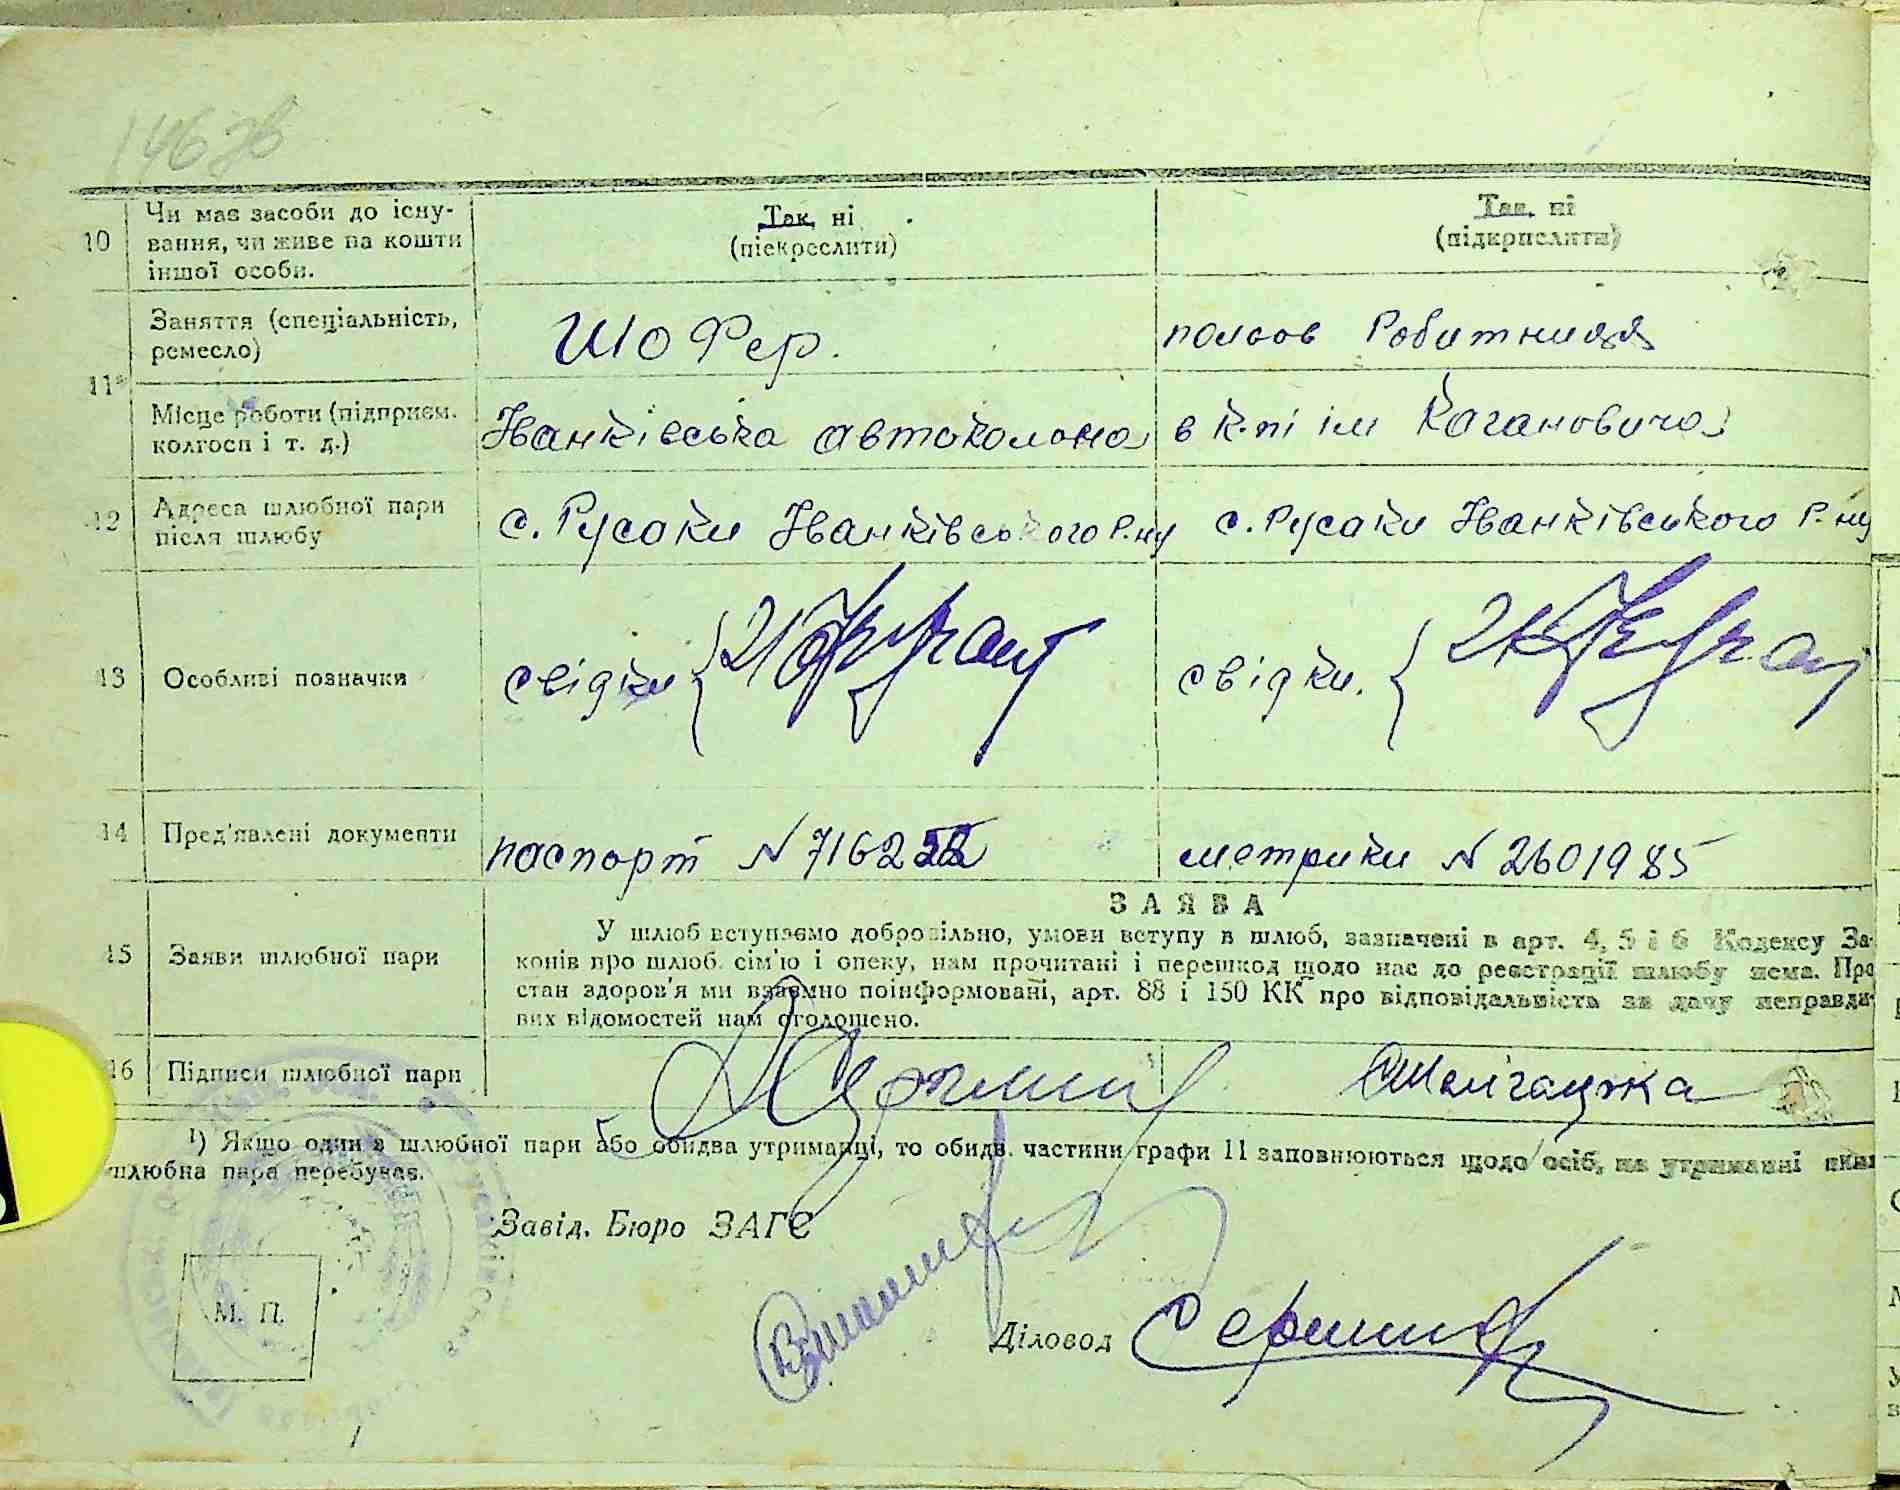 146 зв
10
Чи має засоби до існу-
вання, чи живе на кошти
іншої особи.
Так, ні
(піскреслити)
Так, ні
(підкрпслити)
11
Заняття (спеціальність,
ремесло)
Шофер.
польов Робитниця
Місце роботи (підприєм.
колгосп і т. д.)
Іванківська автоколона
в к-пі ім Кагановича
12
Адреса шлюбної пари
після шлюбу
с. Русаки Іванківського Р.ну
с. Русаки Іванківського Р.ну
13
Особливі позначки
свідки
свідки.
14
Пред'явлені документи
паспорт N 716252
метрики N 2601985
15
Заяви шлюбної пари
ЗАЯВА
У шлюб вступаємо добровільно, умови вступу в шлюб, зазначені в арт. 4, 5 і 6 Кодексу За-
конів про шлюб. сім'ю і опеку, нам прочитані і перешкод щодо нас до реєстрації шлюбу нема. Про
стан здоров'я ми взаємно поінформовані, арт. 88 і 150 КК про відповідальність за дачу неправди-
вих відомостей нам оголошено.
16
Підписи шлюбної пари
¹) Якщо один з шлюбної пари або обидва утриманці, то обидв. частини графи 11 заповнюються щодо осіб, на утриманні яких
шлюбна пара перебуває.
Завід. Бюро ЗАГС
М. П.
Діловод